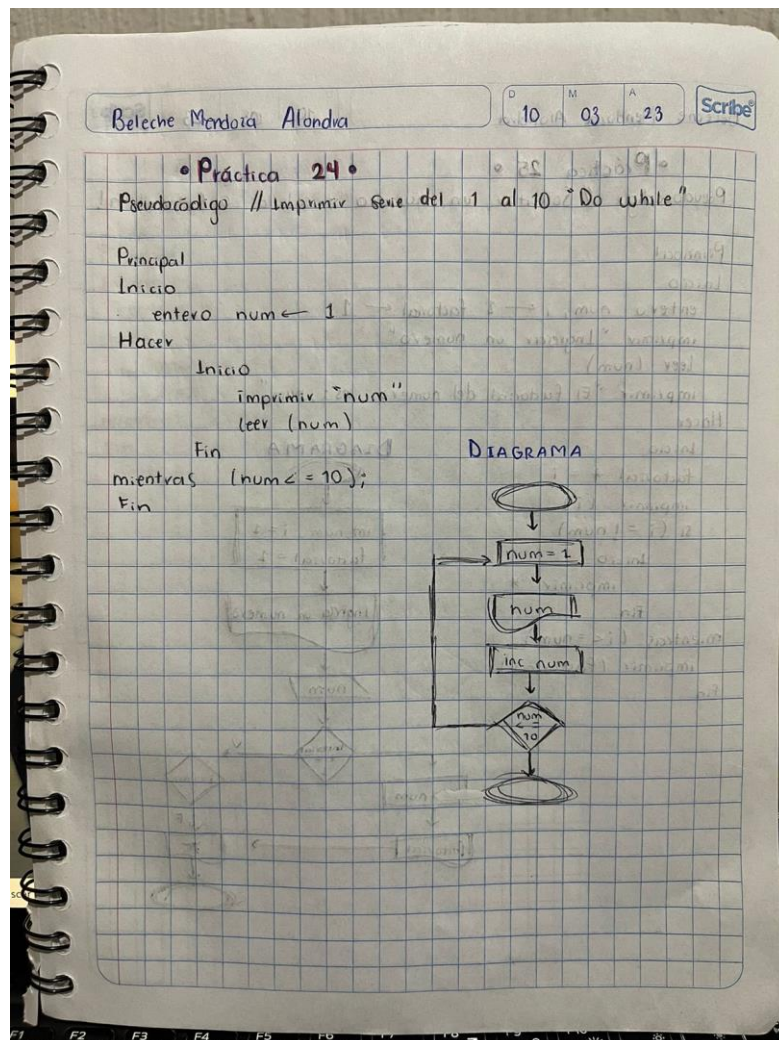 D M A
Beleche Mendoza Alondra 10 03 23 Scribe
• Práctica 24 •
Pseudocódigo // Imprimir serie del 1 al 10 "Do while"
Principal
Inicio
entero num ← 1
Hacer
Inicio
imprimir "num"
leer (num)
Fin
mientras (num < = 10);
Fin
DIAGRAMA
num = 1
num
inc num
num
< =
10
F1 F2 F3 F4 F5 F6 F7 F8 F9